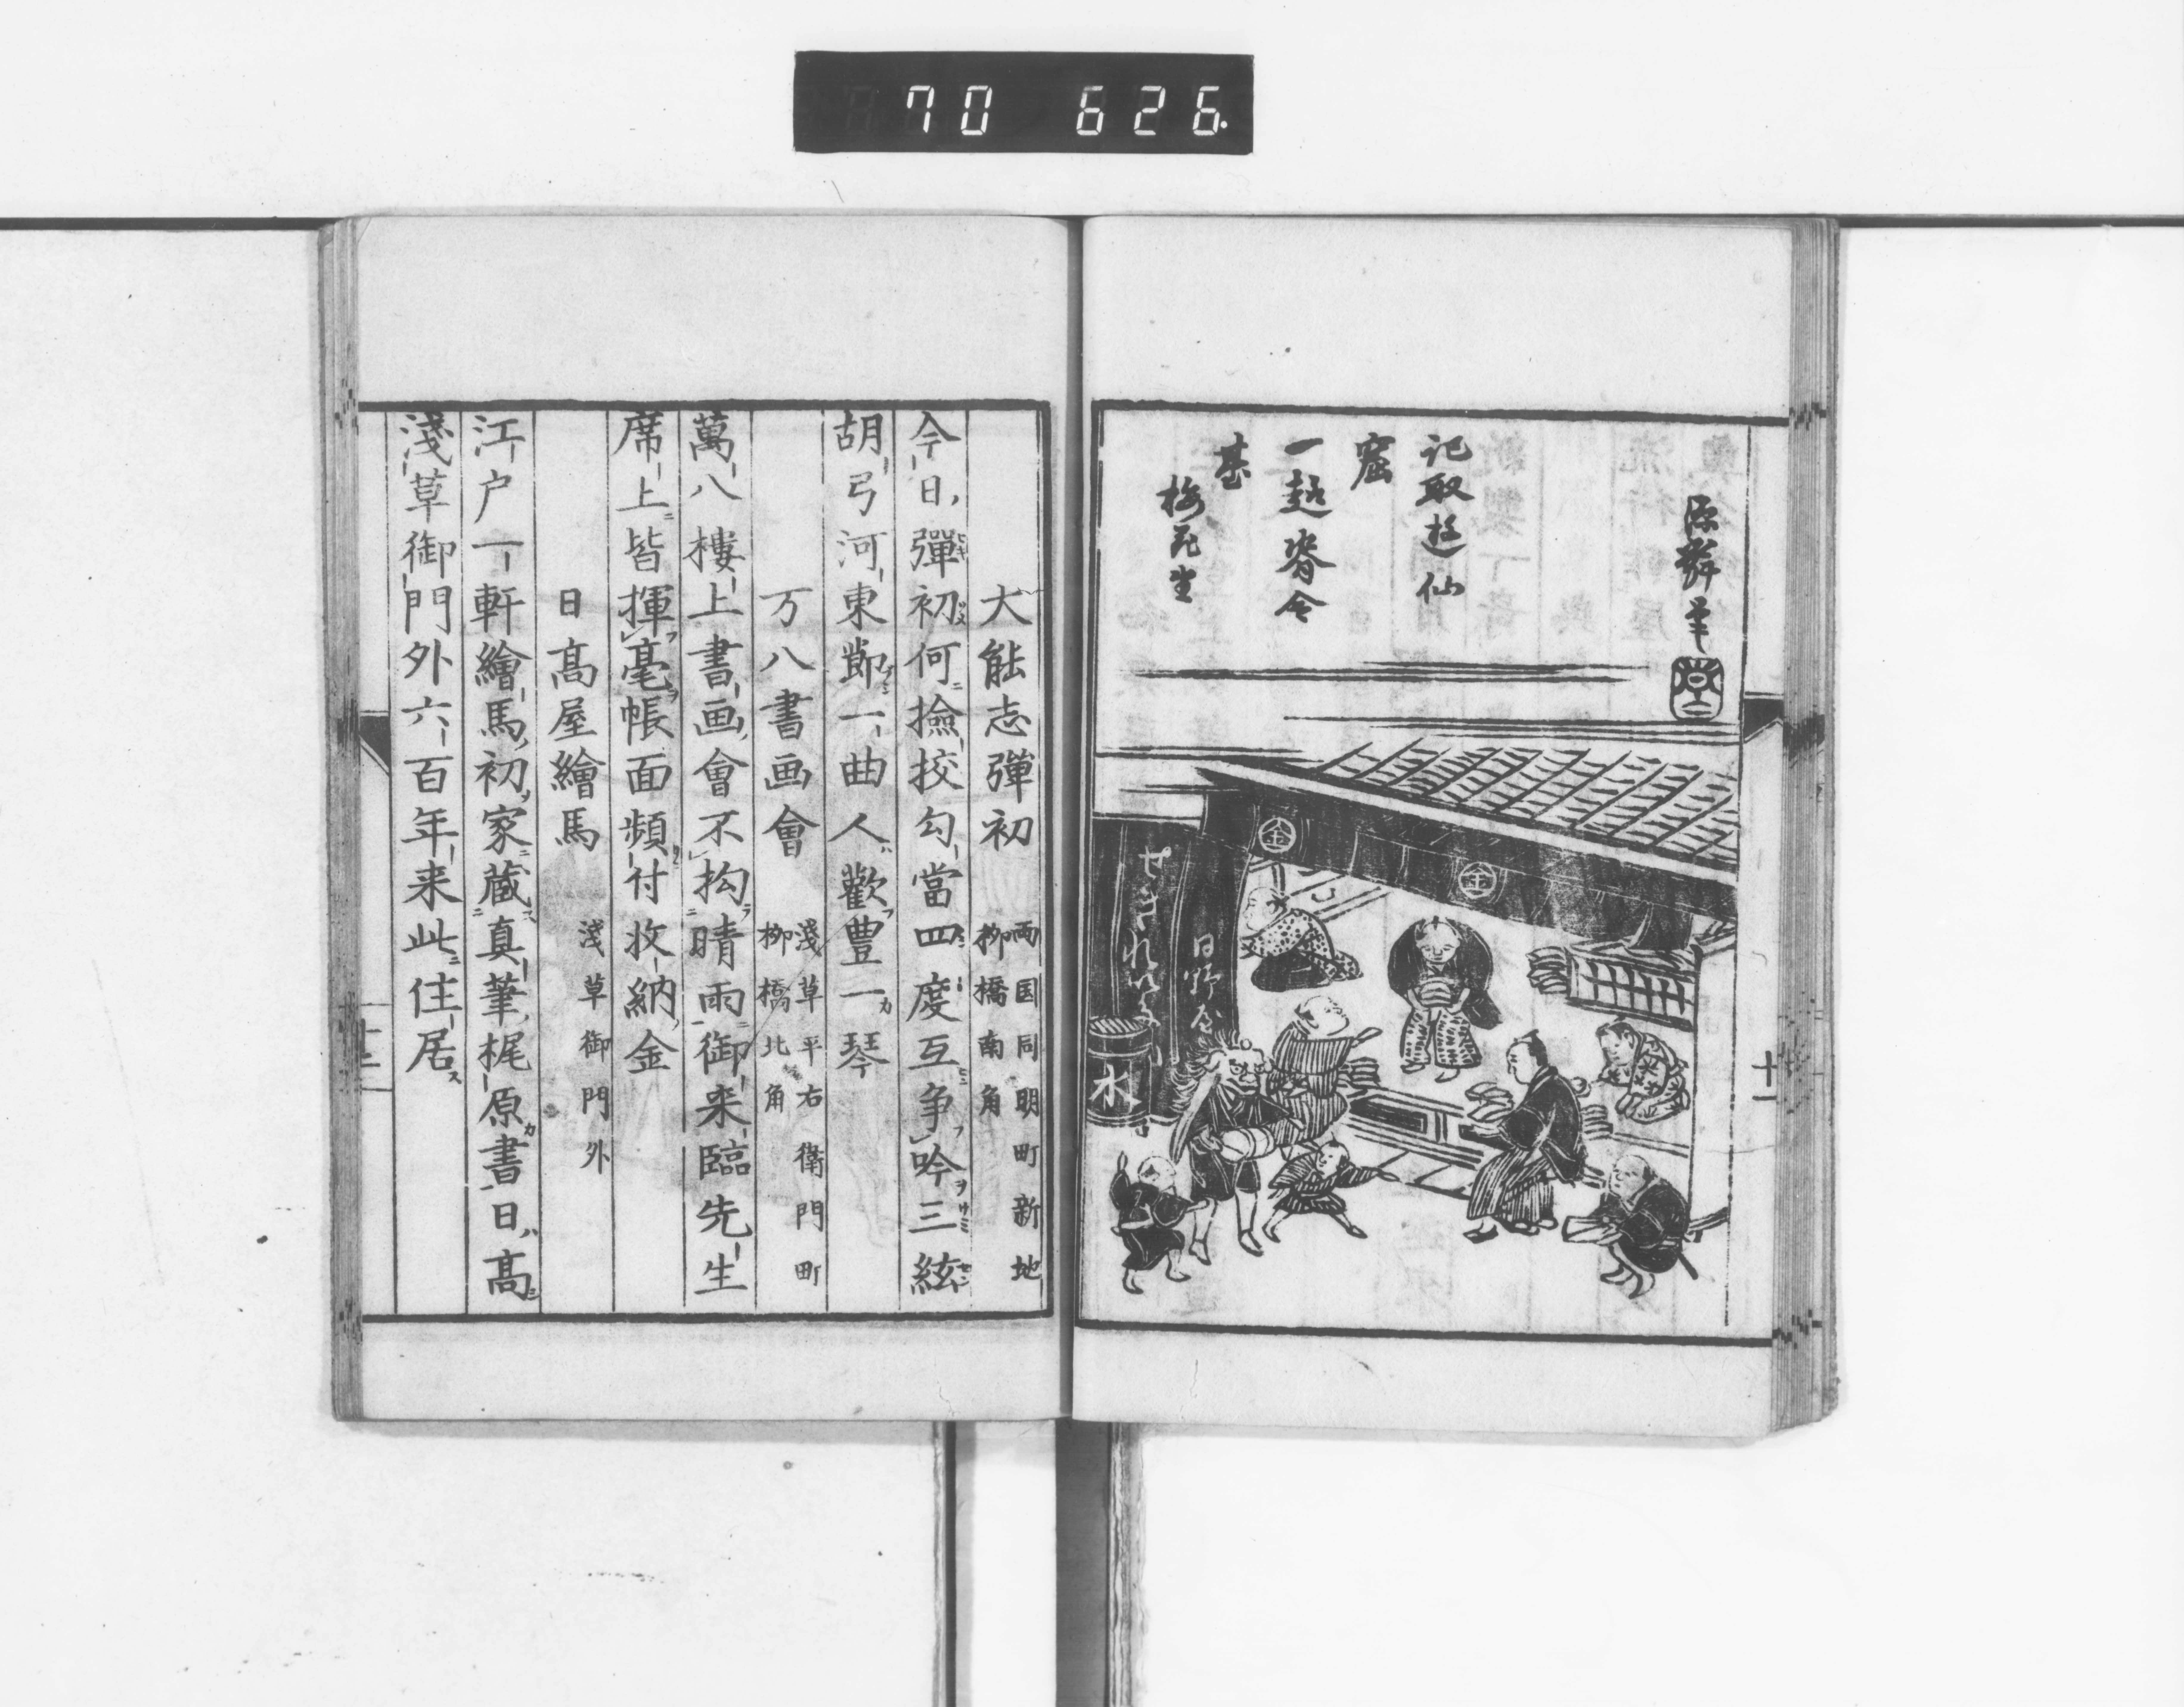 70 626
記取遊仙
窟
一起
甚
梅花
金
金
日野屋
水
十一
大能志彈初
両国同朋町新地
柳橋南角
今日彈初何撿挍勾當四度互争吟三絃
胡弓河東節一曲人歡豊一琴
万八書画會
淺草平右衛門町
柳橋北角
萬八樓上書画會不拘晴雨御来臨先生
席上皆揮毫帳面頻付收納金
日高屋繪馬
淺草御門外
江户一軒繪馬初家蔵真筆梶原書日高
淺草御門外六百年来此住居